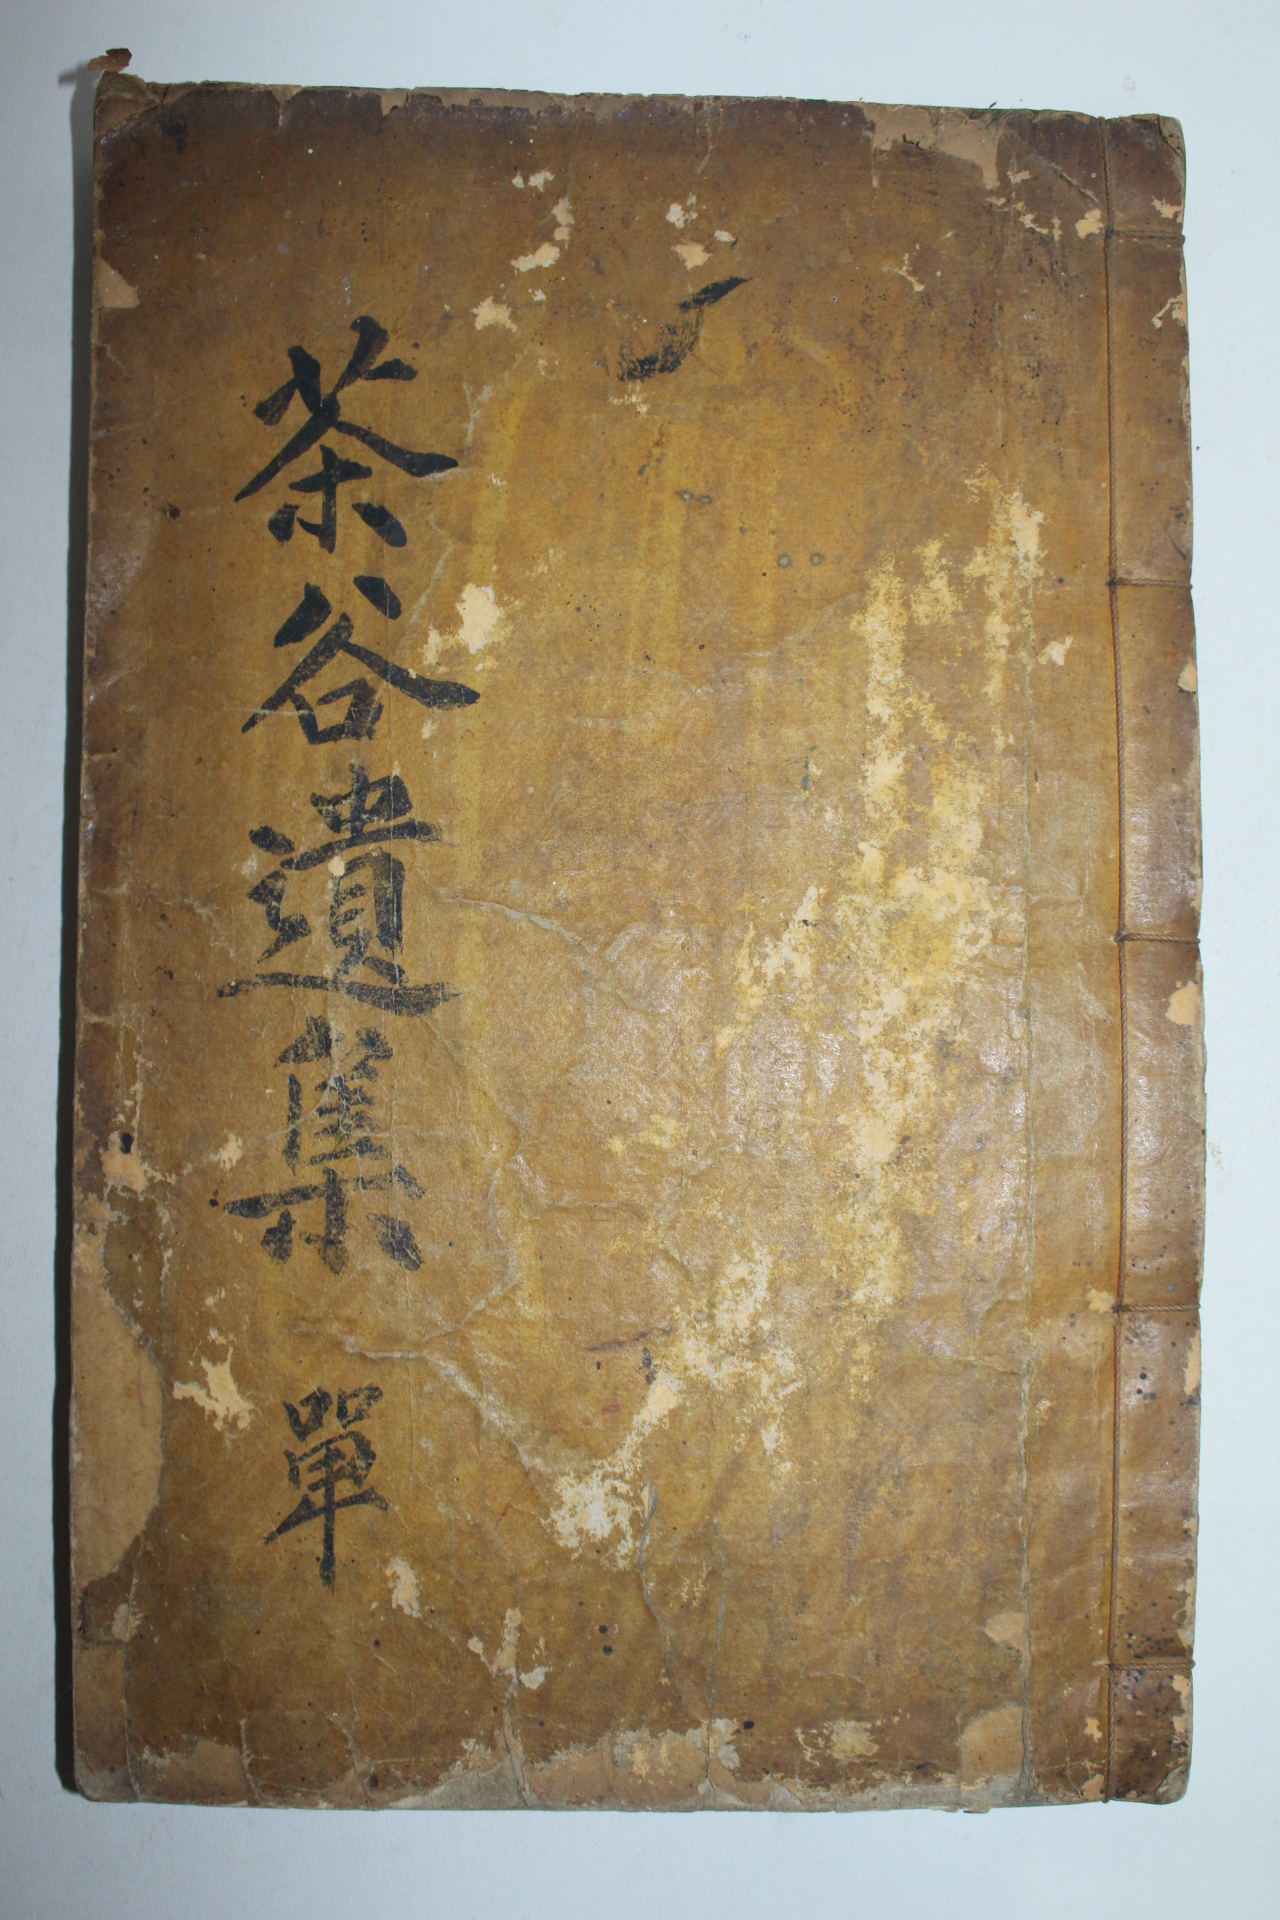 茶谷遺集 單